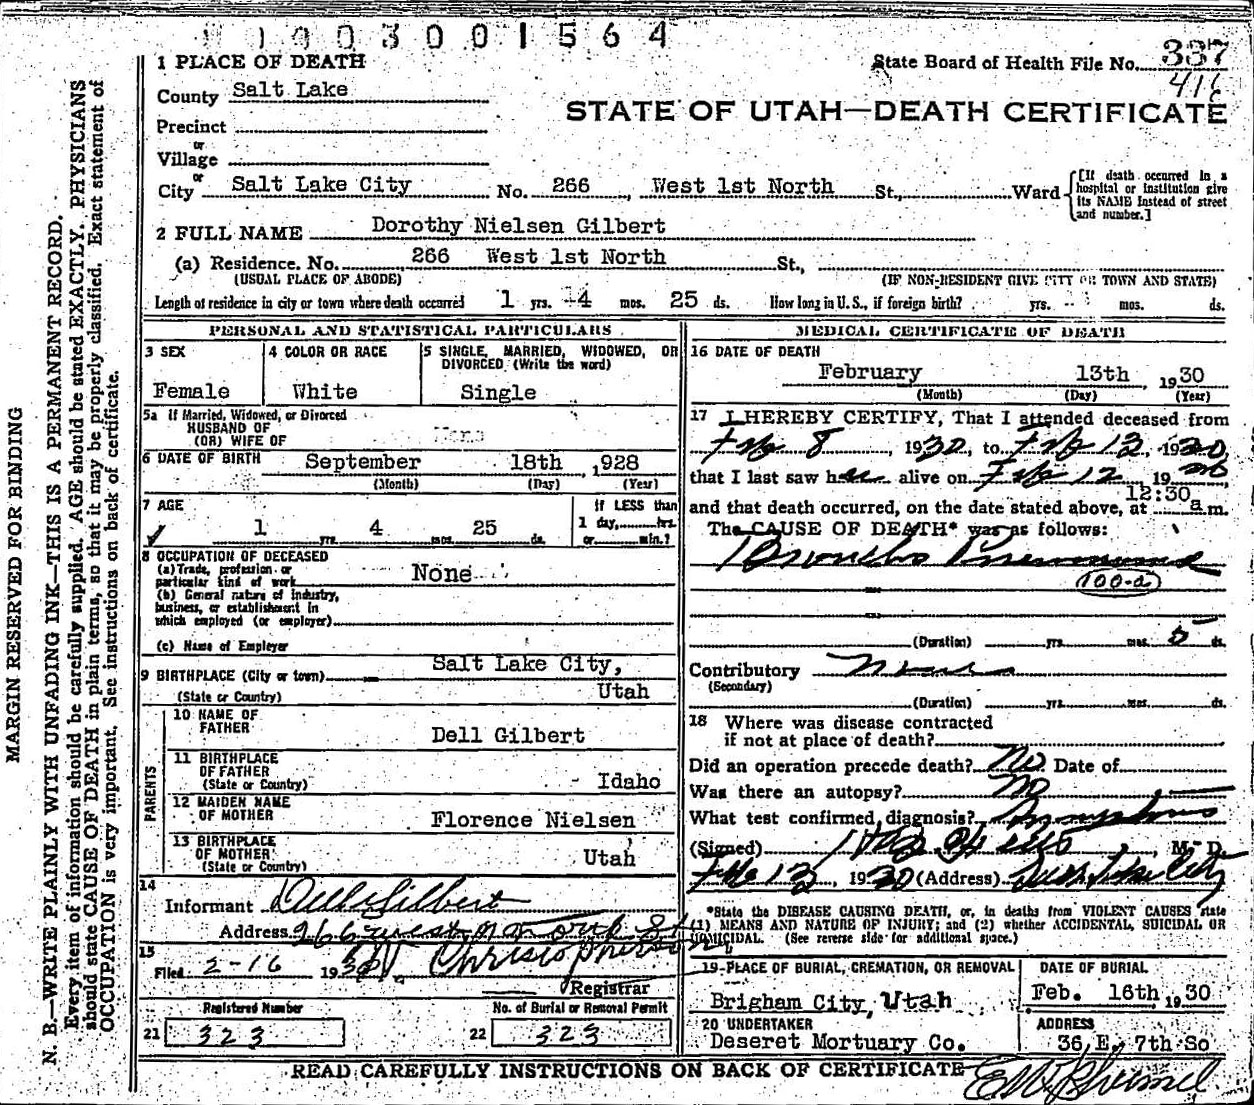 1003001564
1 PLACE OF DEATH
State Board of Health File No. 337
416
County Salt Lake
STATE OF UTAH—DEATH CERTIFICATE
Precinct
or
Village
or
City Salt Lake City No. 266, West 1st North St., Ward
[If death occurred in a hospital or institution give its NAME instead of street and number.]
2 FULL NAME Dorothy Nielsen Gilbert
(a) Residence. No. 266 West 1st North St.,
(USUAL PLACE OF ABODE) (IF NON-RESIDENT GIVE CITY OR TOWN AND STATE)
Length of residence in city or town where death occurred 1 yrs. 4 mos. 25 ds. How long in U.S., if foreign birth? yrs. mos. ds.
PERSONAL AND STATISTICAL PARTICULARS
3 SEX
Female
4 COLOR OR RACE
White
5 SINGLE, MARRIED, WIDOWED, OR
DIVORCED (Write the word)
Single
5a If Married, Widowed, or Divorced
HUSBAND OF
(OR) WIFE OF None
6 DATE OF BIRTH September 18th, 1928
(Month) (Day) (Year)
7 AGE
1 yrs. 4 mos. 25 ds.
If LESS than
1 day, hrs.
or min.?
8 OCCUPATION OF DECEASED
(a) Trade, profession or
particular kind of work None
(b) General nature of industry,
business, or establishment in
which employed (or employer)
(c) Name of Employer
9 BIRTHPLACE (City or town) Salt Lake City,
(State or Country) Utah
PARENTS
10 NAME OF
FATHER Dell Gilbert
11 BIRTHPLACE
OF FATHER
(State or Country) Idaho
12 MAIDEN NAME
OF MOTHER Florence Nielsen
13 BIRTHPLACE
OF MOTHER
(State or Country) Utah
14
Informant Dell Gilbert
Address 266 west 1st North St
15
Filed 2-16 1930
Registrar
Registered Number
21 323
No. of Burial or Removal Permit
22 323
MEDICAL CERTIFICATE OF DEATH
16 DATE OF DEATH
February 13th, 1930
(Month) (Day) (Year)
17 I HEREBY CERTIFY, That I attended deceased from
Feb 8, 1930, to Feb 12, 1930,
that I last saw her alive on Feb 12 1930,
and that death occurred, on the date stated above, at 12:30 a m.
The CAUSE OF DEATH* was as follows:
Broncho Pneumonia
100-a
(Duration) yrs. mos. 5 ds.
Contributory None
(Secondary)
(Duration) yrs. mos. ds.
18 Where was disease contracted
if not at place of death?
Did an operation precede death? No Date of
Was there an autopsy? No
What test confirmed diagnosis? Symptoms
(Signed) M. D.
Feb 13, 1930 (Address) Salt Lake City
*State the DISEASE CAUSING DEATH, or, in deaths from VIOLENT CAUSES state
(1) MEANS AND NATURE OF INJURY; and (2) whether ACCIDENTAL, SUICIDAL OR
HOMICIDAL. (See reverse side for additional space.)
19-PLACE OF BURIAL, CREMATION, OR REMOVAL
Brigham City, Utah
DATE OF BURIAL
Feb. 16th, 1930
20 UNDERTAKER
Deseret Mortuary Co.
ADDRESS
36 E. 7th So
READ CAREFULLY INSTRUCTIONS ON BACK OF CERTIFICATE
MARGIN RESERVED FOR BINDING
N. B.—WRITE PLAINLY WITH UNFADING INK—THIS IS A PERMANENT RECORD.
Every item of information should be carefully supplied. AGE should be stated EXACTLY. PHYSICIANS
should state CAUSE OF DEATH in plain terms, so that it may be properly classified. Exact statement of
OCCUPATION is very important. See instructions on back of certificate.